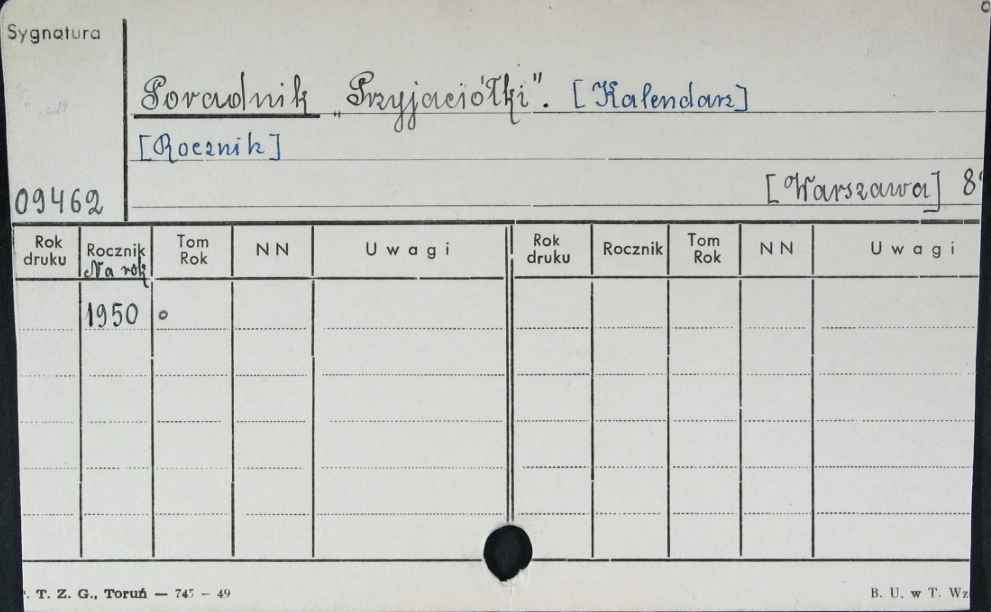 Sygnatura
Poradnik „Przyjaciółki”. [Kalendarz]
[Rocznik]
[Warszawa] 8°
09462
Rok druku Rocznik Na rok Tom Rok NN Uwagi Rok druku Rocznik Tom Rok NN Uwagi
1950 o
T. Z. G., Toruń — 745 — 49 B. U. w T. Wz